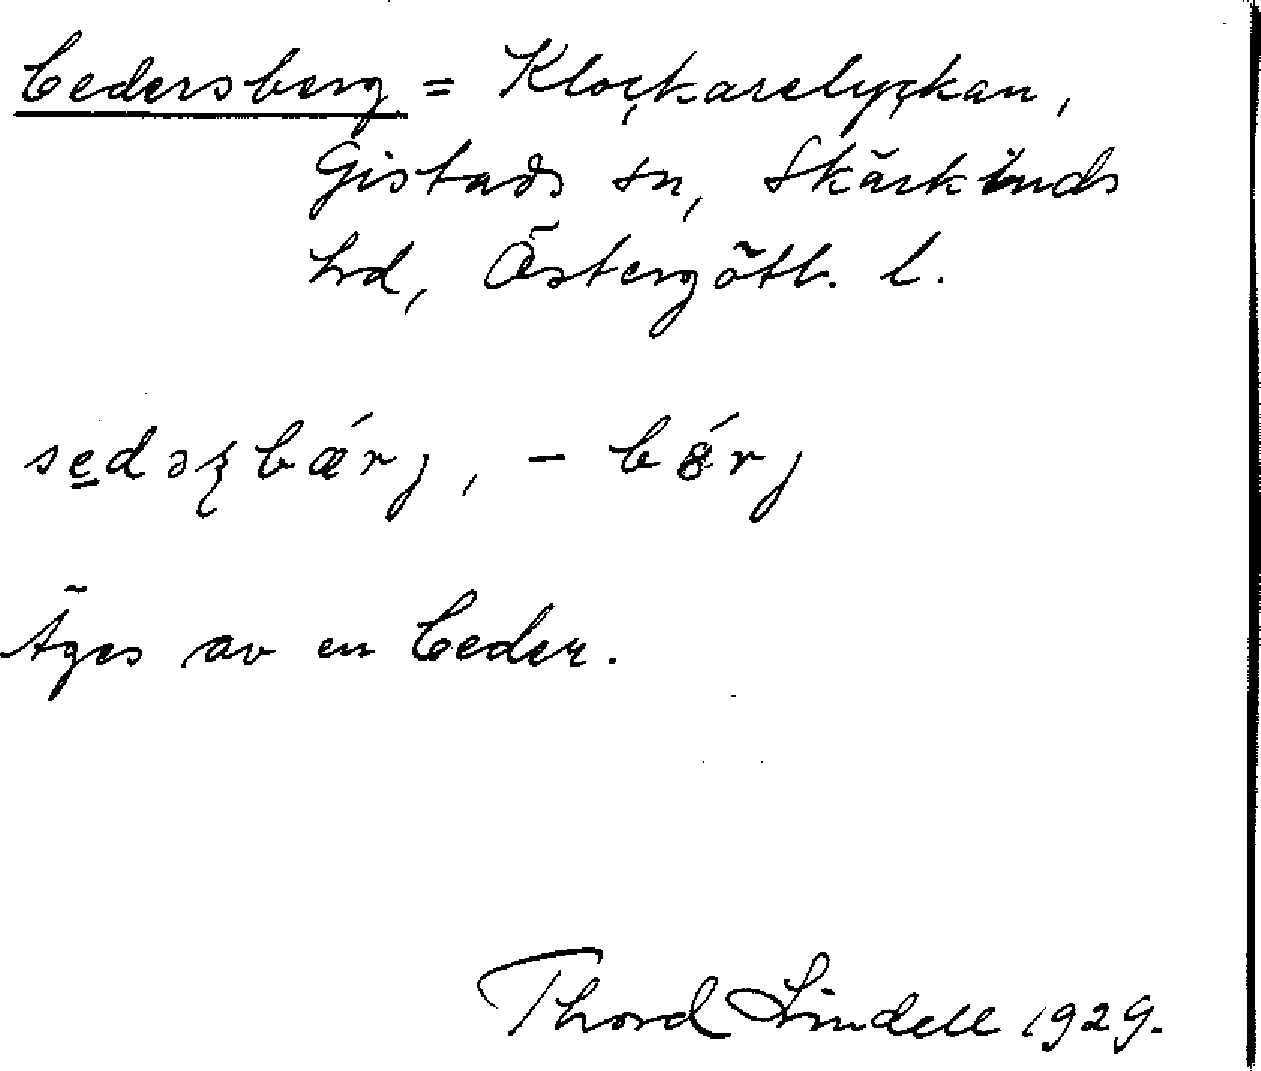 Cedersberg = Klockarelyckan,
Gistads sn, Skärkinds
hd, Östergötl. l.
sedəʂbǽrj, - bɞ́rj
Äges av en Ceder.
Thord Lindell 1929.